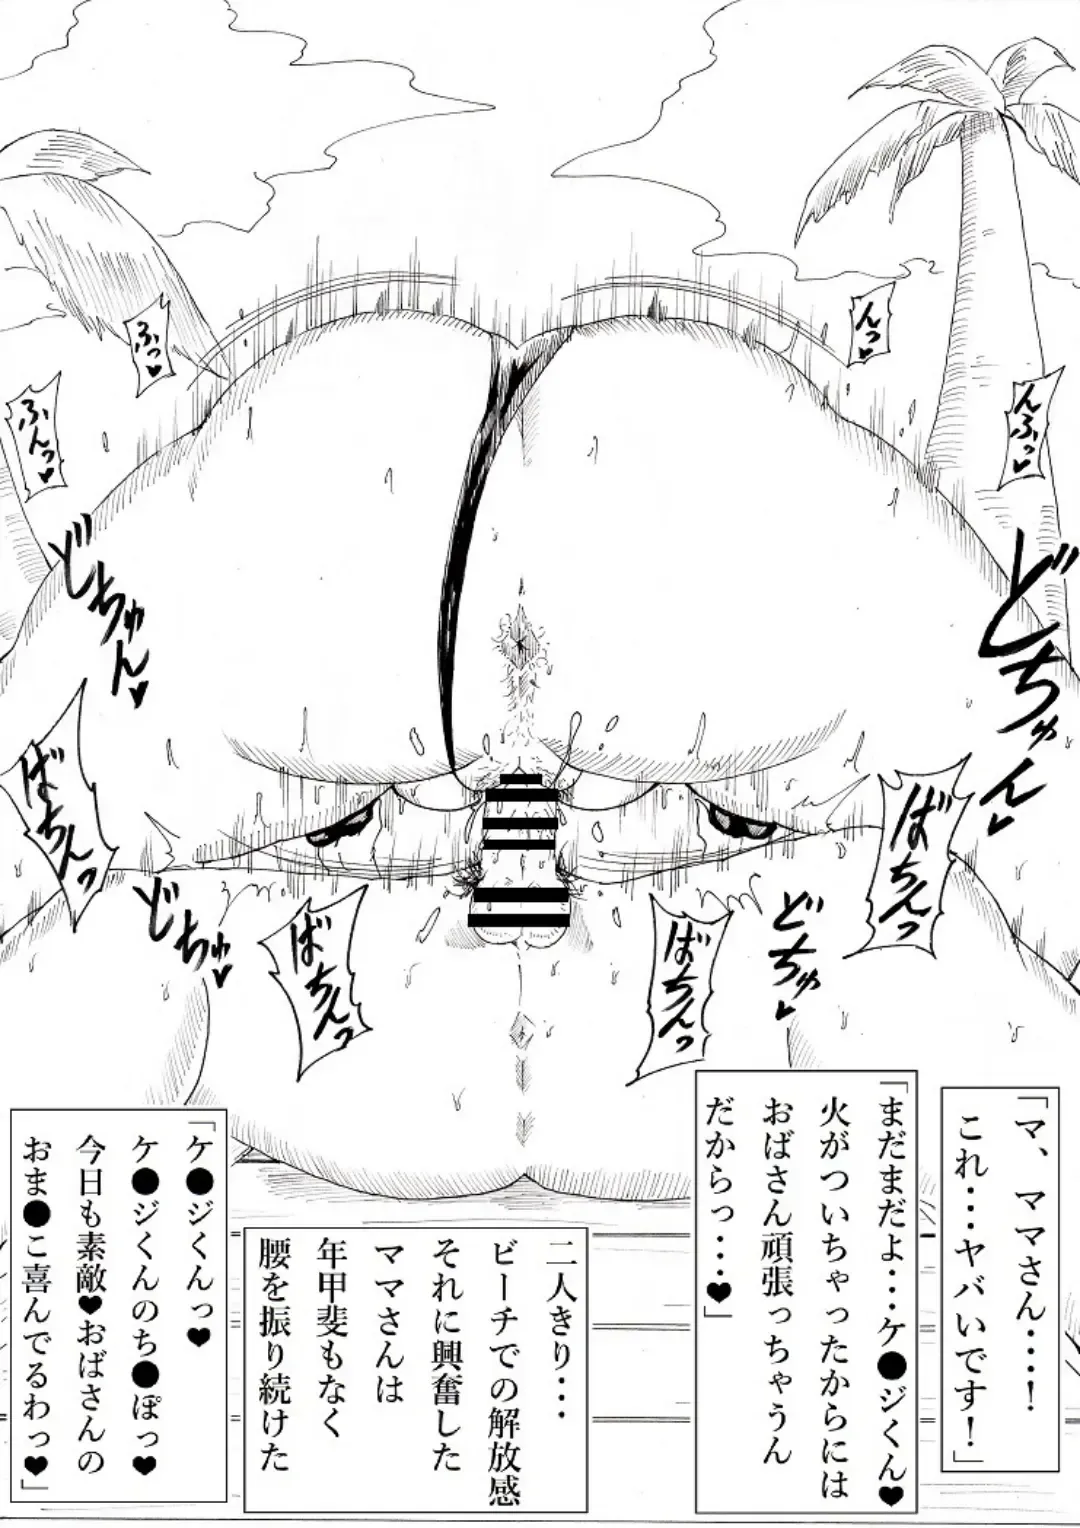 「マ、ママさん・・・！
これ・・・ヤバいです！」
「まだまだよ・・・ケ●ジくん♥
火がついちゃったからには
おばさん頑張っちゃうん
だからっ・・・♥」
二人きり・・・
ビーチでの解放感
それに興奮した
ママさんは
年甲斐もなく
腰を振り続けた
「ケ●ジくんっ♥
ケ●ジくんのち●ぽっ♥
今日も素敵♥おばさんの
おま●こ喜んでるわっ♥」
んっ♥
んふっ♥
ふっ♥
ふんっ♥
どちゅん♥
どちゅん♥
ばちんっ
ばちんっ
どちゅ♥
どちゅ♥
ばちんっ
ばちんっ